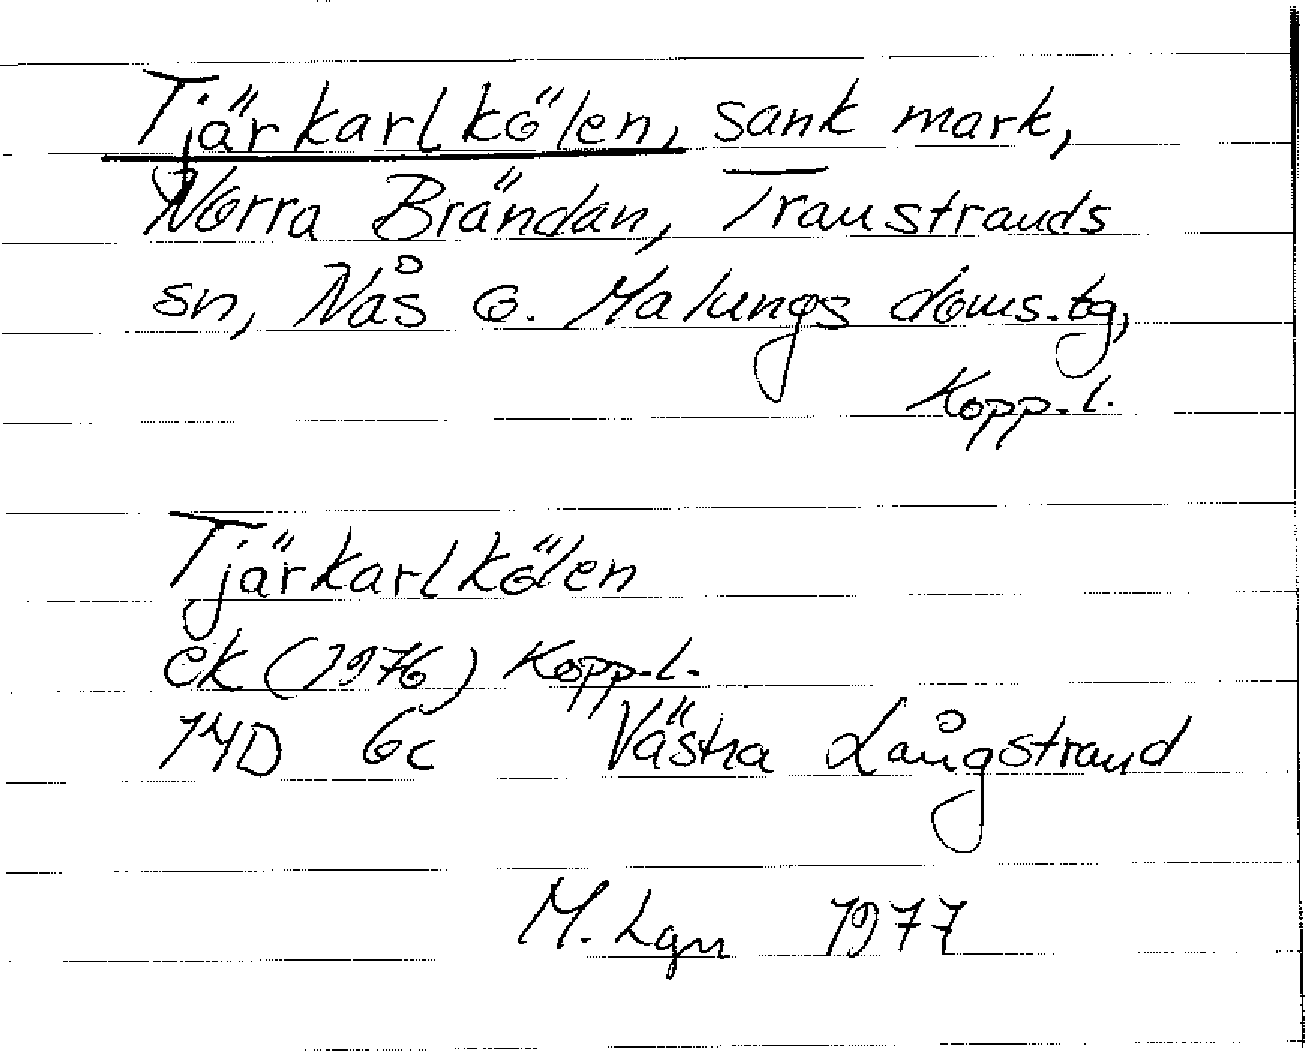 Tjärkarlkölen, sank mark,
Norra Brändan, Transtrands
sn, Nås o. Malungs doms.tg,
Kopp.l.
Tjärkarlkölen
ek (1976) Kopp.l.
14D 6c Västra Långstrand
M. Lgn 1977